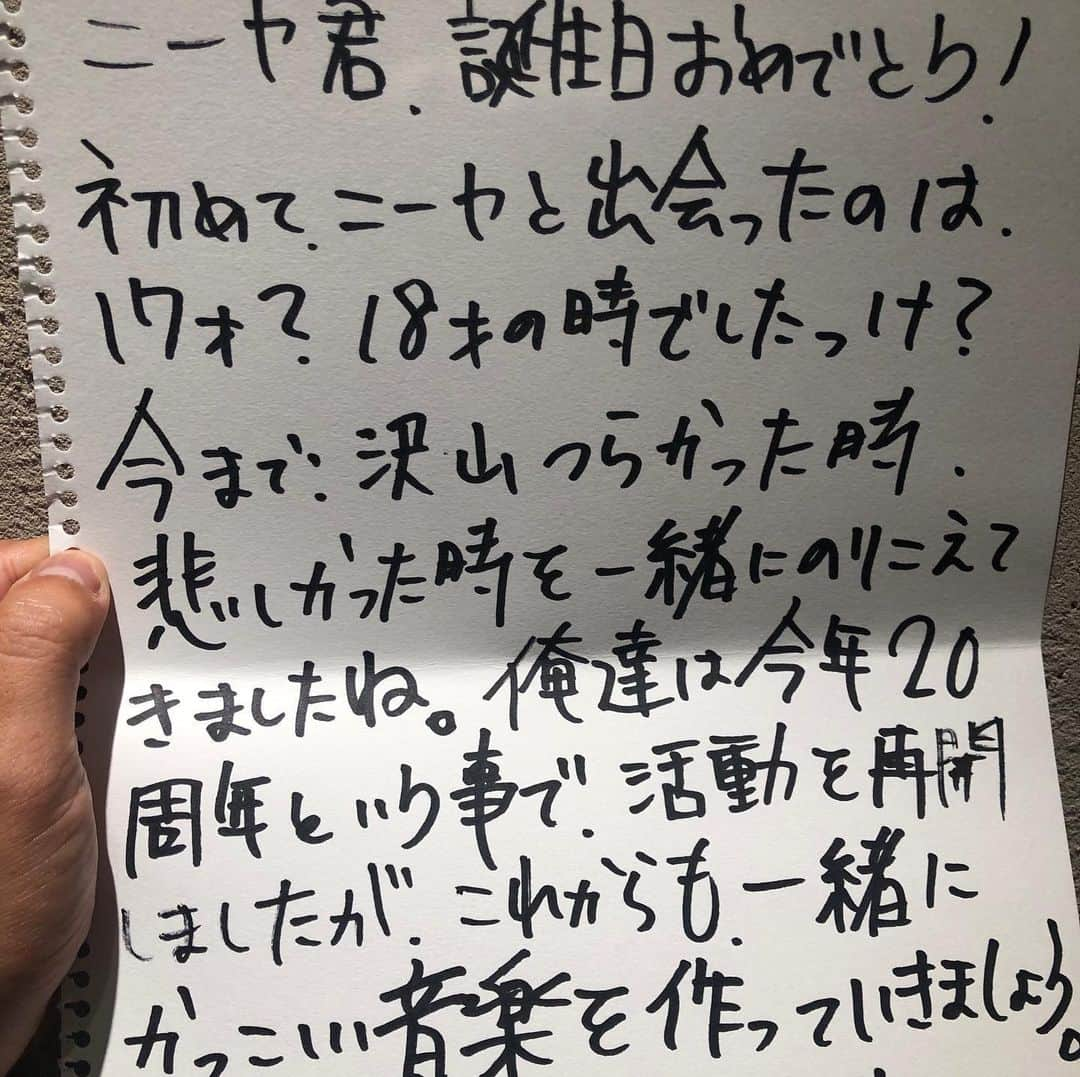 ニーヤ君、誕生日おめでとう!
初めて、ニーヤと出会ったのは、
17才?18才の時でしたっけ?
今まで、沢山つらかった時、
悲しかった時を一緒にのりこえて
きましたね。俺達は今年20
周年という事で、活動を再開
しましたが、これからも、一緒に
かっこいい音楽を作っていきましょう。